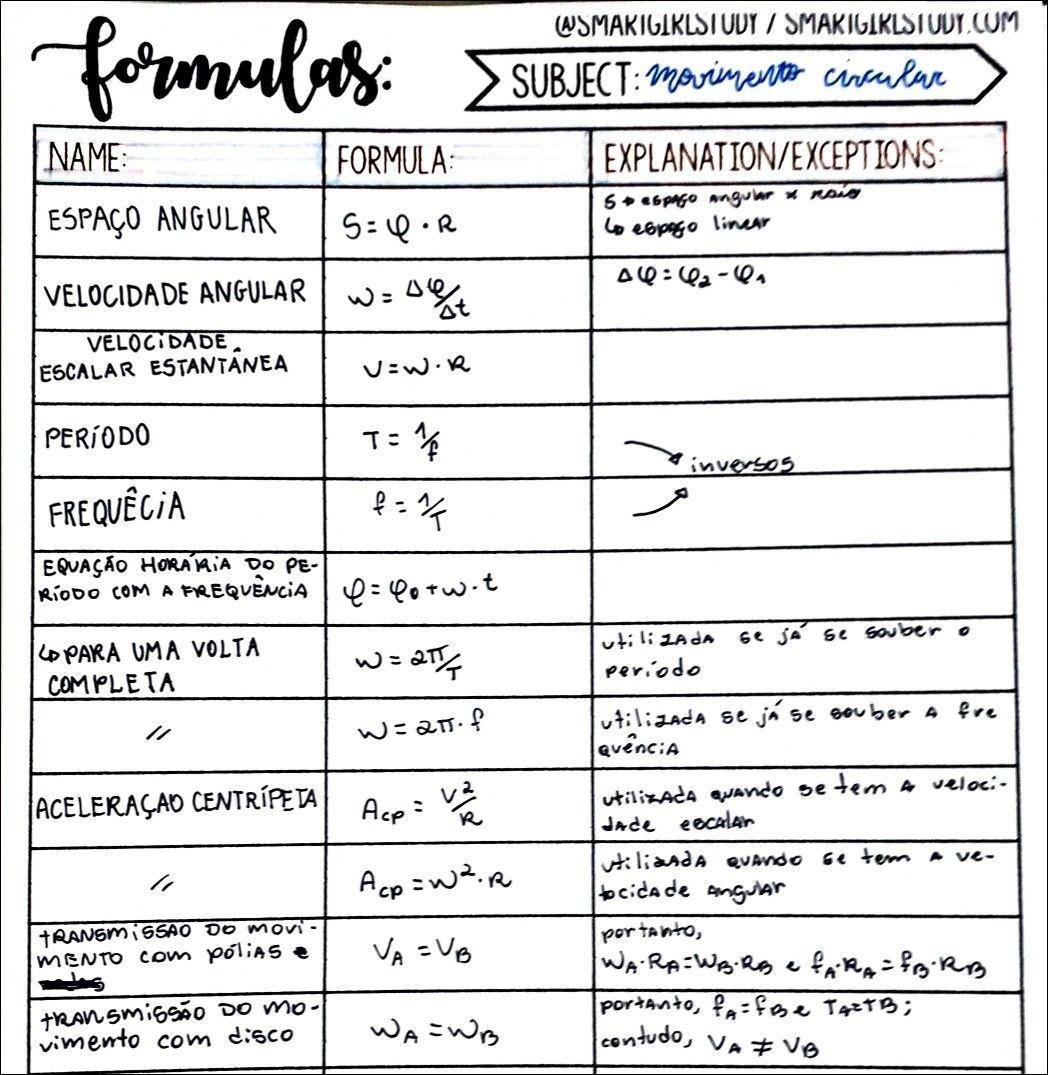 @SMARTGIRLSTUDY / SMARTGIRLSTUDY.COM
formulas:
SUBJECT: movimento circular
NAME: FORMULA: EXPLANATION/EXCEPTIONS:
ESPAÇO ANGULAR S = φ · R S → espaço angular x raio
↳ espaço linear
VELOCIDADE ANGULAR W = Δφ/Δt Δφ = φ₂ - φ₁
VELOCIDADE
ESCALAR ESTANTÂNEA V = W · R
PERÍODO T = 1/f
inversos
FREQUÊCIA f = 1/T
EQUAÇÃO HORÁRIA DO PE-
RÍODO COM A FREQUÊNCIA φ = φ₀ + W · t
↳ PARA UMA VOLTA
COMPLETA W = 2π/T utilizada se já se souber o
período
〃 W = 2π · f utilizada se já se souber a fre
quência
ACELERAÇAO CENTRÍPETA Acp = V²/R utilizada quando se tem a veloci-
dade escalar
〃 Acp = W² · R utilizada quando se tem a ve-
locidade angular
TRANSMISSAO DO MOVI-
MENTO COM PÓLIAS e VA = VB portanto,
WA·RA = WB·RB e fA·RA = fB·RB
TRANSMISSÃO DO MO-
vimento com disco WA = WB portanto, fA = fB e TA = TB;
contudo, VA ≠ VB